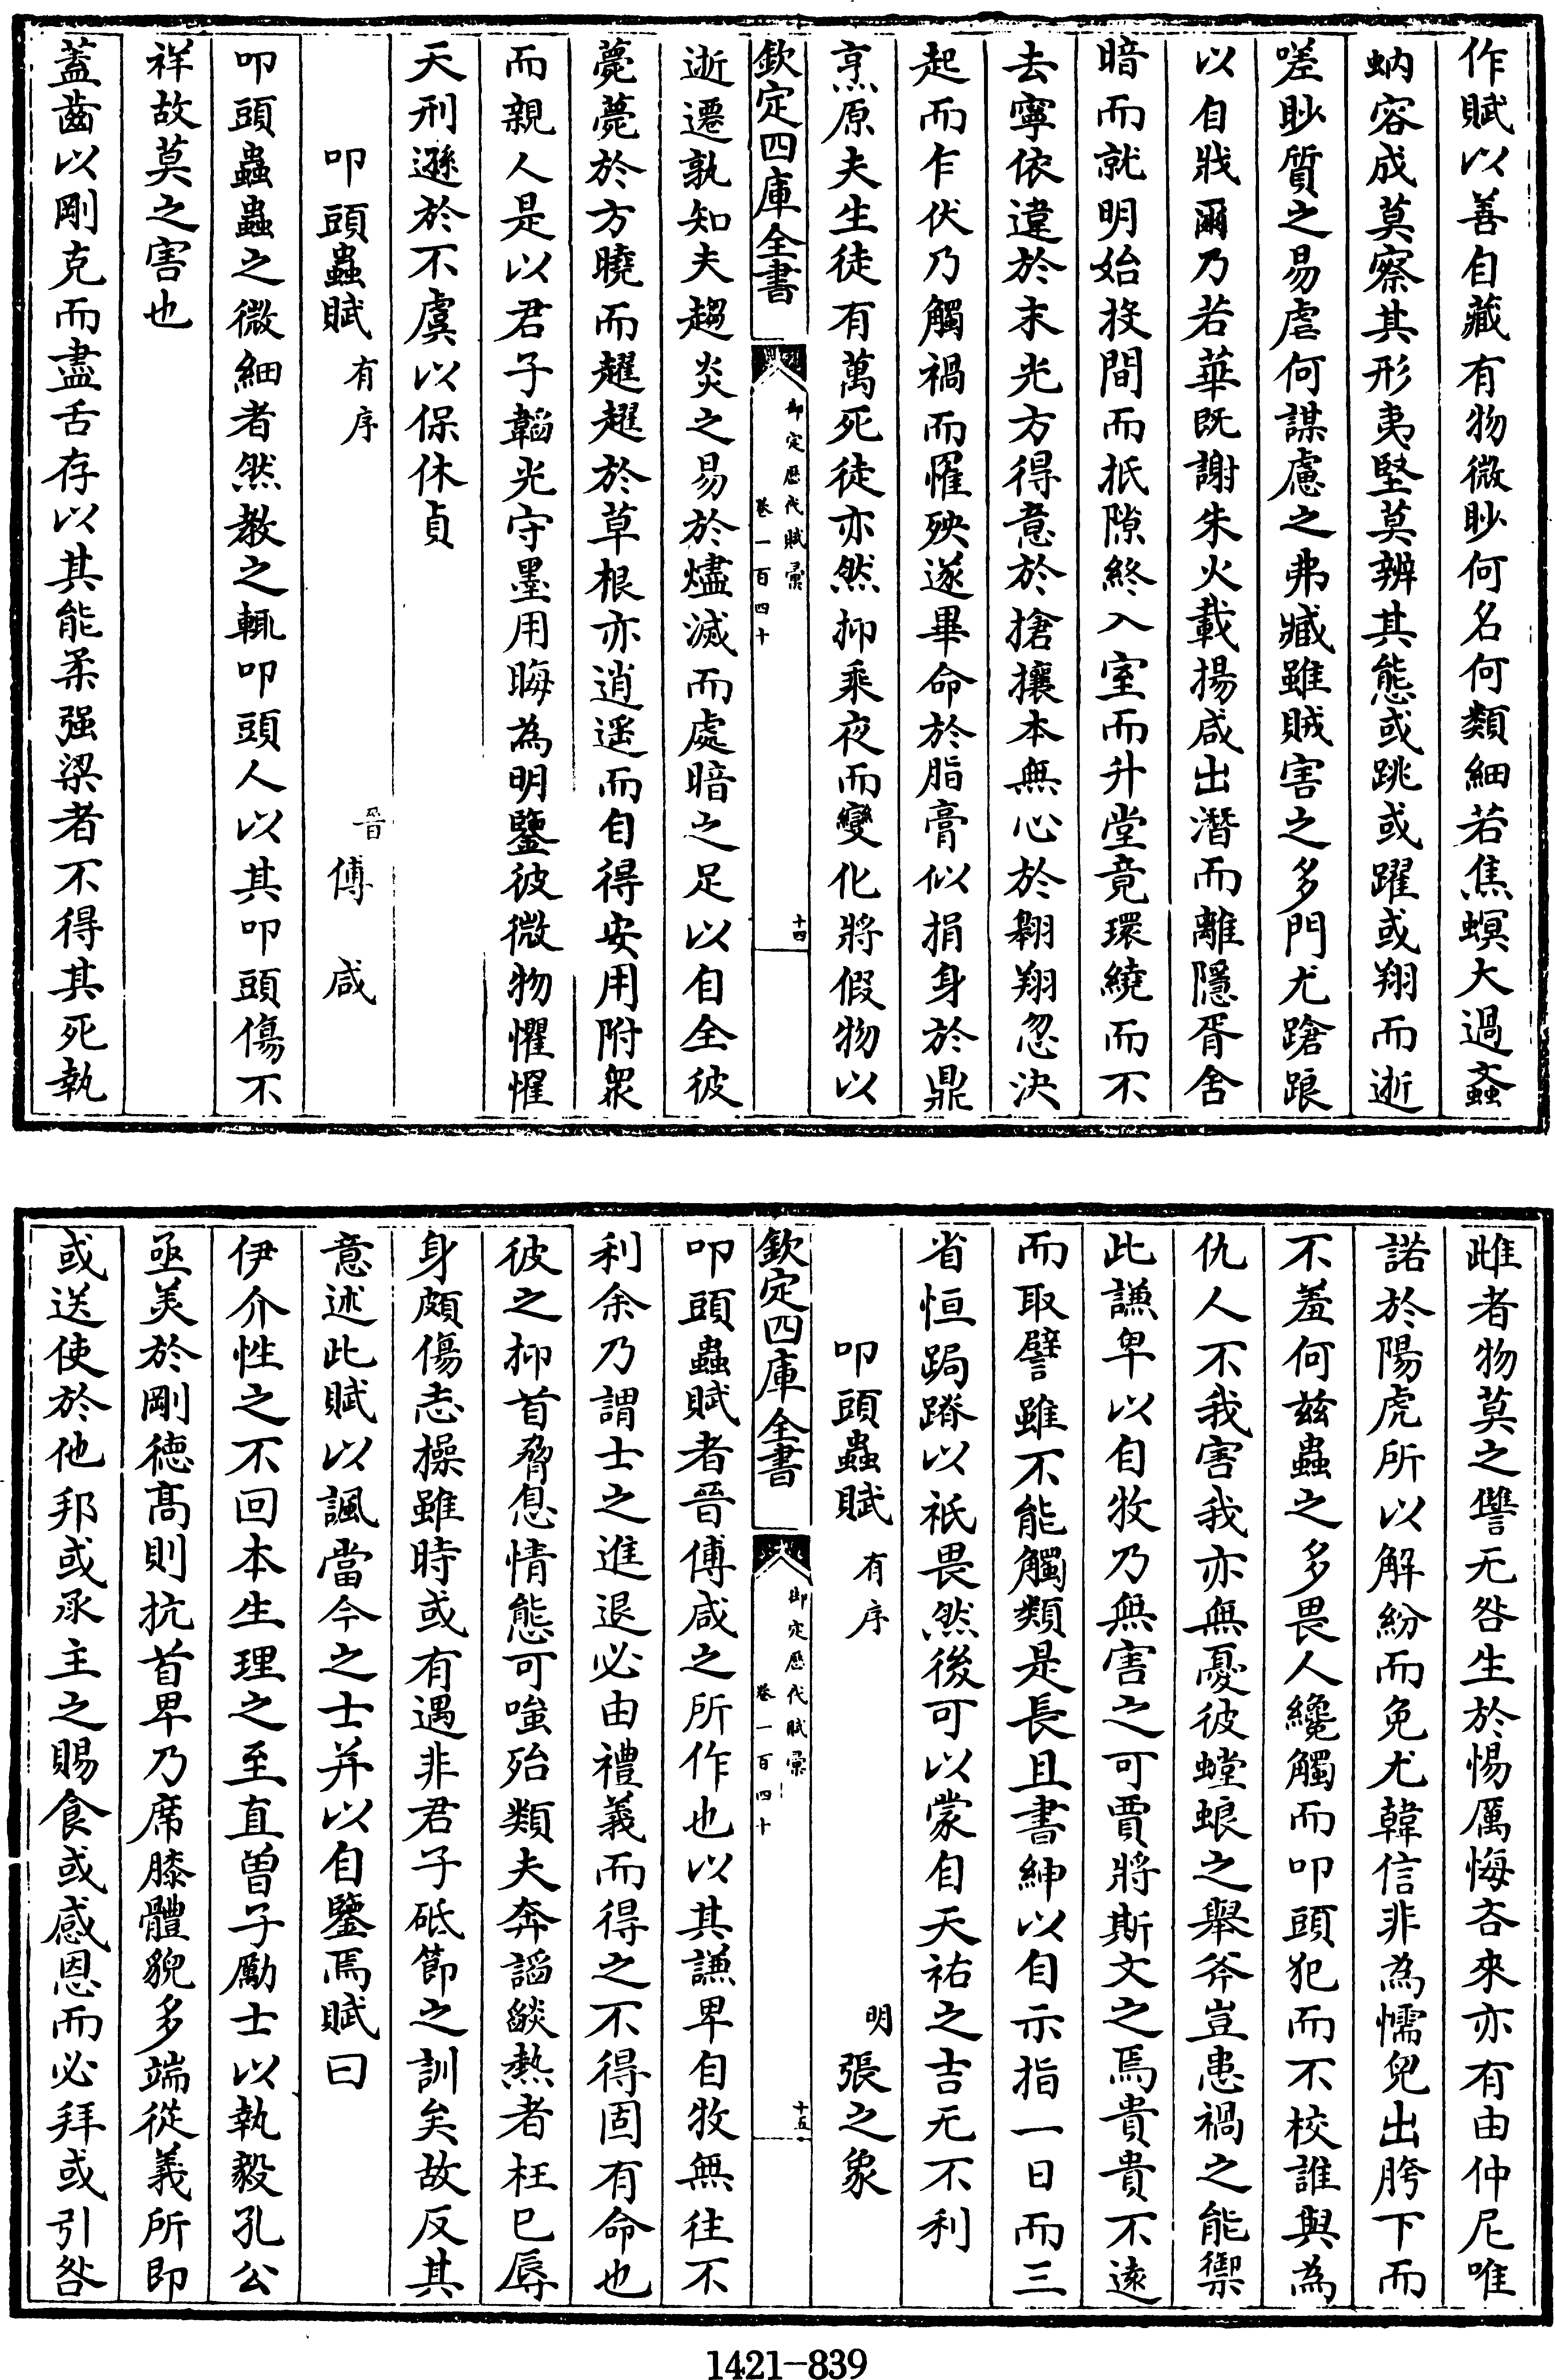 作賦以善自藏有物微眇何名何類細若焦螟大過蝱
蚋容成莫察其形夷堅莫辨其態或跳或躍或翔而逝
嗟眇質之易虐何謀慮之弗臧雖賊害之多門尤蹌踉
以自戕爾乃若華既謝朱火載揚咸出潛而離隱胥舍
暗而就明始投間而抵隙終入室而升堂竟環繞而不
去寧依違於末光方得意於搶攘本無心於翱翔忽決
起而乍伏乃觸禍而罹殃遂畢命於脂膏似捐身於鼎
烹原夫生徒有萬死徒亦然抑乘夜而變化將假物以
欽定四庫全書
御定歷代賦彙
卷一百四十
十四
逝遷孰知夫趨炎之易於燼滅而處暗之足以自全彼
薨薨於方曉而趯趯於草根亦逍遥而自得安用附衆
而親人是以君子韜光守墨用晦為明鑒彼微物懼懼
天刑遜於不虞以保休貞
叩頭蟲賦 有序 晉 傅咸
叩頭蟲蟲之微細者然教之輒叩頭人以其叩頭傷不
祥故莫之害也
蓋齒以剛克而盡舌存以其能柔强梁者不得其死執
雌者物莫之讐无咎生於惕厲悔吝來亦有由仲尼唯
諾於陽虎所以解紛而免尤韓信非為懦兒出胯下而
不羞何兹蟲之多畏人纔觸而叩頭犯而不校誰與為
仇人不我害我亦無憂彼螳蜋之舉斧豈患禍之能禦
此謙卑以自牧乃無害之可賈將斯文之焉貴貴不逺
而取譬雖不能觸類是長且書紳以自示指一日而三
省恒跼蹐以祇畏然後可以蒙自天祐之吉无不利
叩頭蟲賦 有序 明 張之象
欽定四庫全書
御定歷代賦彙
卷一百四十
十五
叩頭蟲賦者晉傅咸之所作也以其謙卑自牧無往不
利余乃謂士之進退必由禮義而得之不得固有命也
彼之抑首脅息情態可嗤殆類夫奔謟燄熱者枉已辱
身頗傷志操雖時或有遇非君子砥節之訓矣故反其
意述此賦以諷當今之士并以自鑒焉賦曰
伊介性之不回本生理之至直曽子勵士以執毅孔公
亟羙於剛德髙則抗首卑乃席膝體貌多端從義所即
或送使於他邦或承主之賜食或感恩而必拜或引咎
1421-839